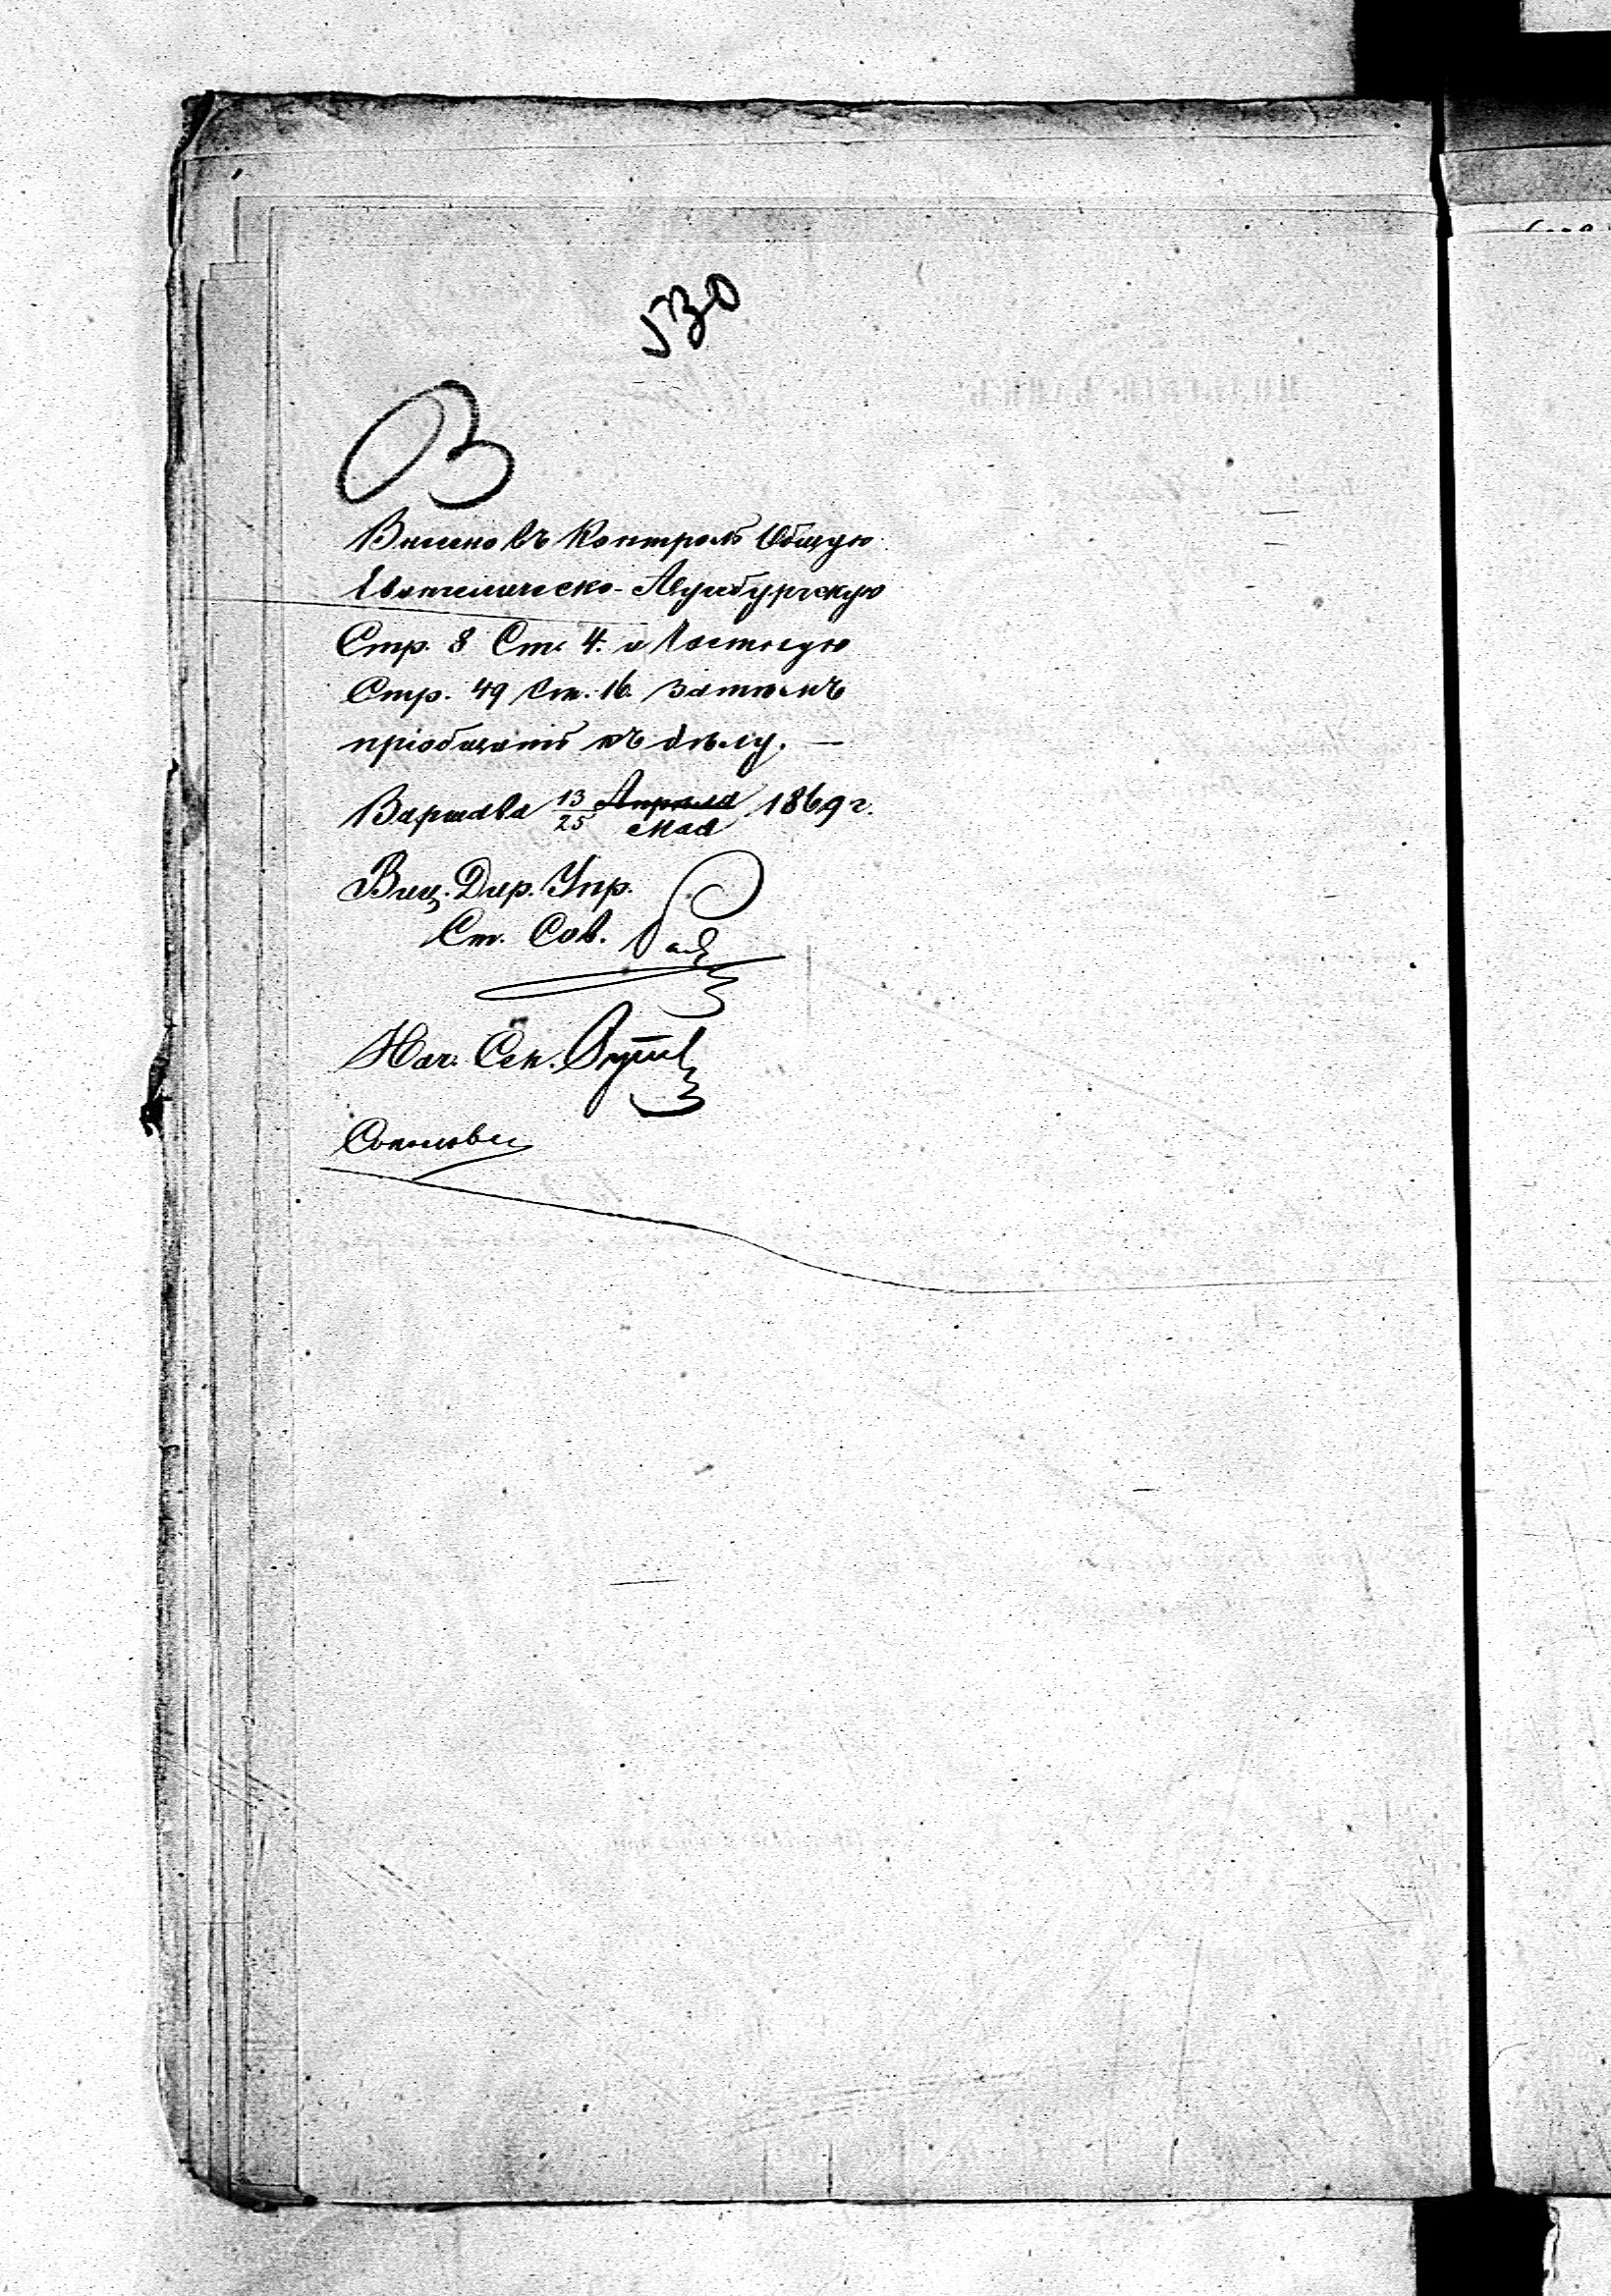 530
ОЗ
Внесено въ Контроль Общую
Евангелическо-Аугсбургскую
Стр. 8 Ст. 4. и Частную
Стр. 49 Ст. 16. затѣмъ
пріобщить къ дѣлу. —
Варшава 13/25 Апрѣля Мая 1869 г.
Виц. Дир. Упр.
Ст. Сов.
Нач. Сек.